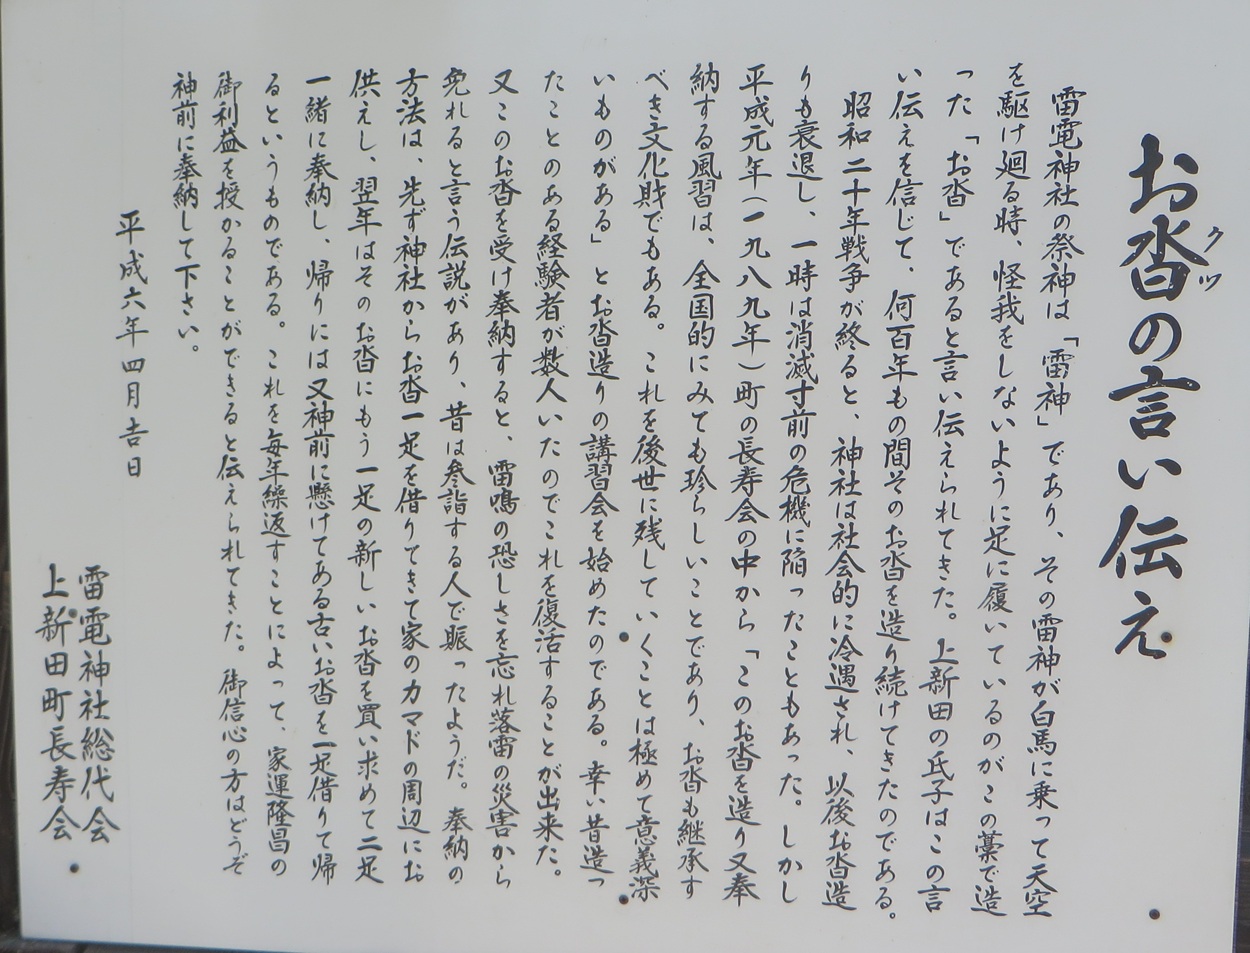 お沓の言い伝え
クツ
雷電神社の祭神は「雷神」であり、その雷神が白馬に乗って天空
を駆け廻る時、怪我をしないように足に履いているのがこの藁で造
った「お沓」であると言い伝えられてきた。上新田の氏子はこの言
い伝えを信じて、何百年もの間そのお沓を造り続けてきたのである。
昭和二十年戦争が終ると、神社は社会的に冷遇され、以後お沓造
りも衰退し、一時は消滅寸前の危機に陥ったこともあった。しかし
平成元年(一九八九年)町の長寿会の中から「このお沓を造り又奉
納する風習は、全国的にみても珍らしいことであり、お沓も継承す
べき文化財でもある。これを後世に残していくことは極めて意義深
いものがある」とお沓造りの講習会を始めたのである。幸い昔造っ
たことのある経験者が数人いたのでこれを復活することが出来た。
又このお沓を受け奉納すると、雷鳴の恐しさを忘れ落雷の災害から
免れると言う伝説があり、昔は参詣する人で賑ったようだ。奉納の
方法は、先ず神社からお沓一足を借りてきて家のカマドの周辺にお
供えし、翌年はそのお沓にもう一足の新しいお沓を買い求めて二足
一緒に奉納し、帰りには又神前に懸けてある古いお沓を一足借りて帰
るというものである。これを毎年繰返すことによって、家運隆昌の
御利益を授かることができると伝えられてきた。御信心の方はどうぞ
神前に奉納して下さい。
平成六年四月吉日
雷電神社総代会
上新田町長寿会